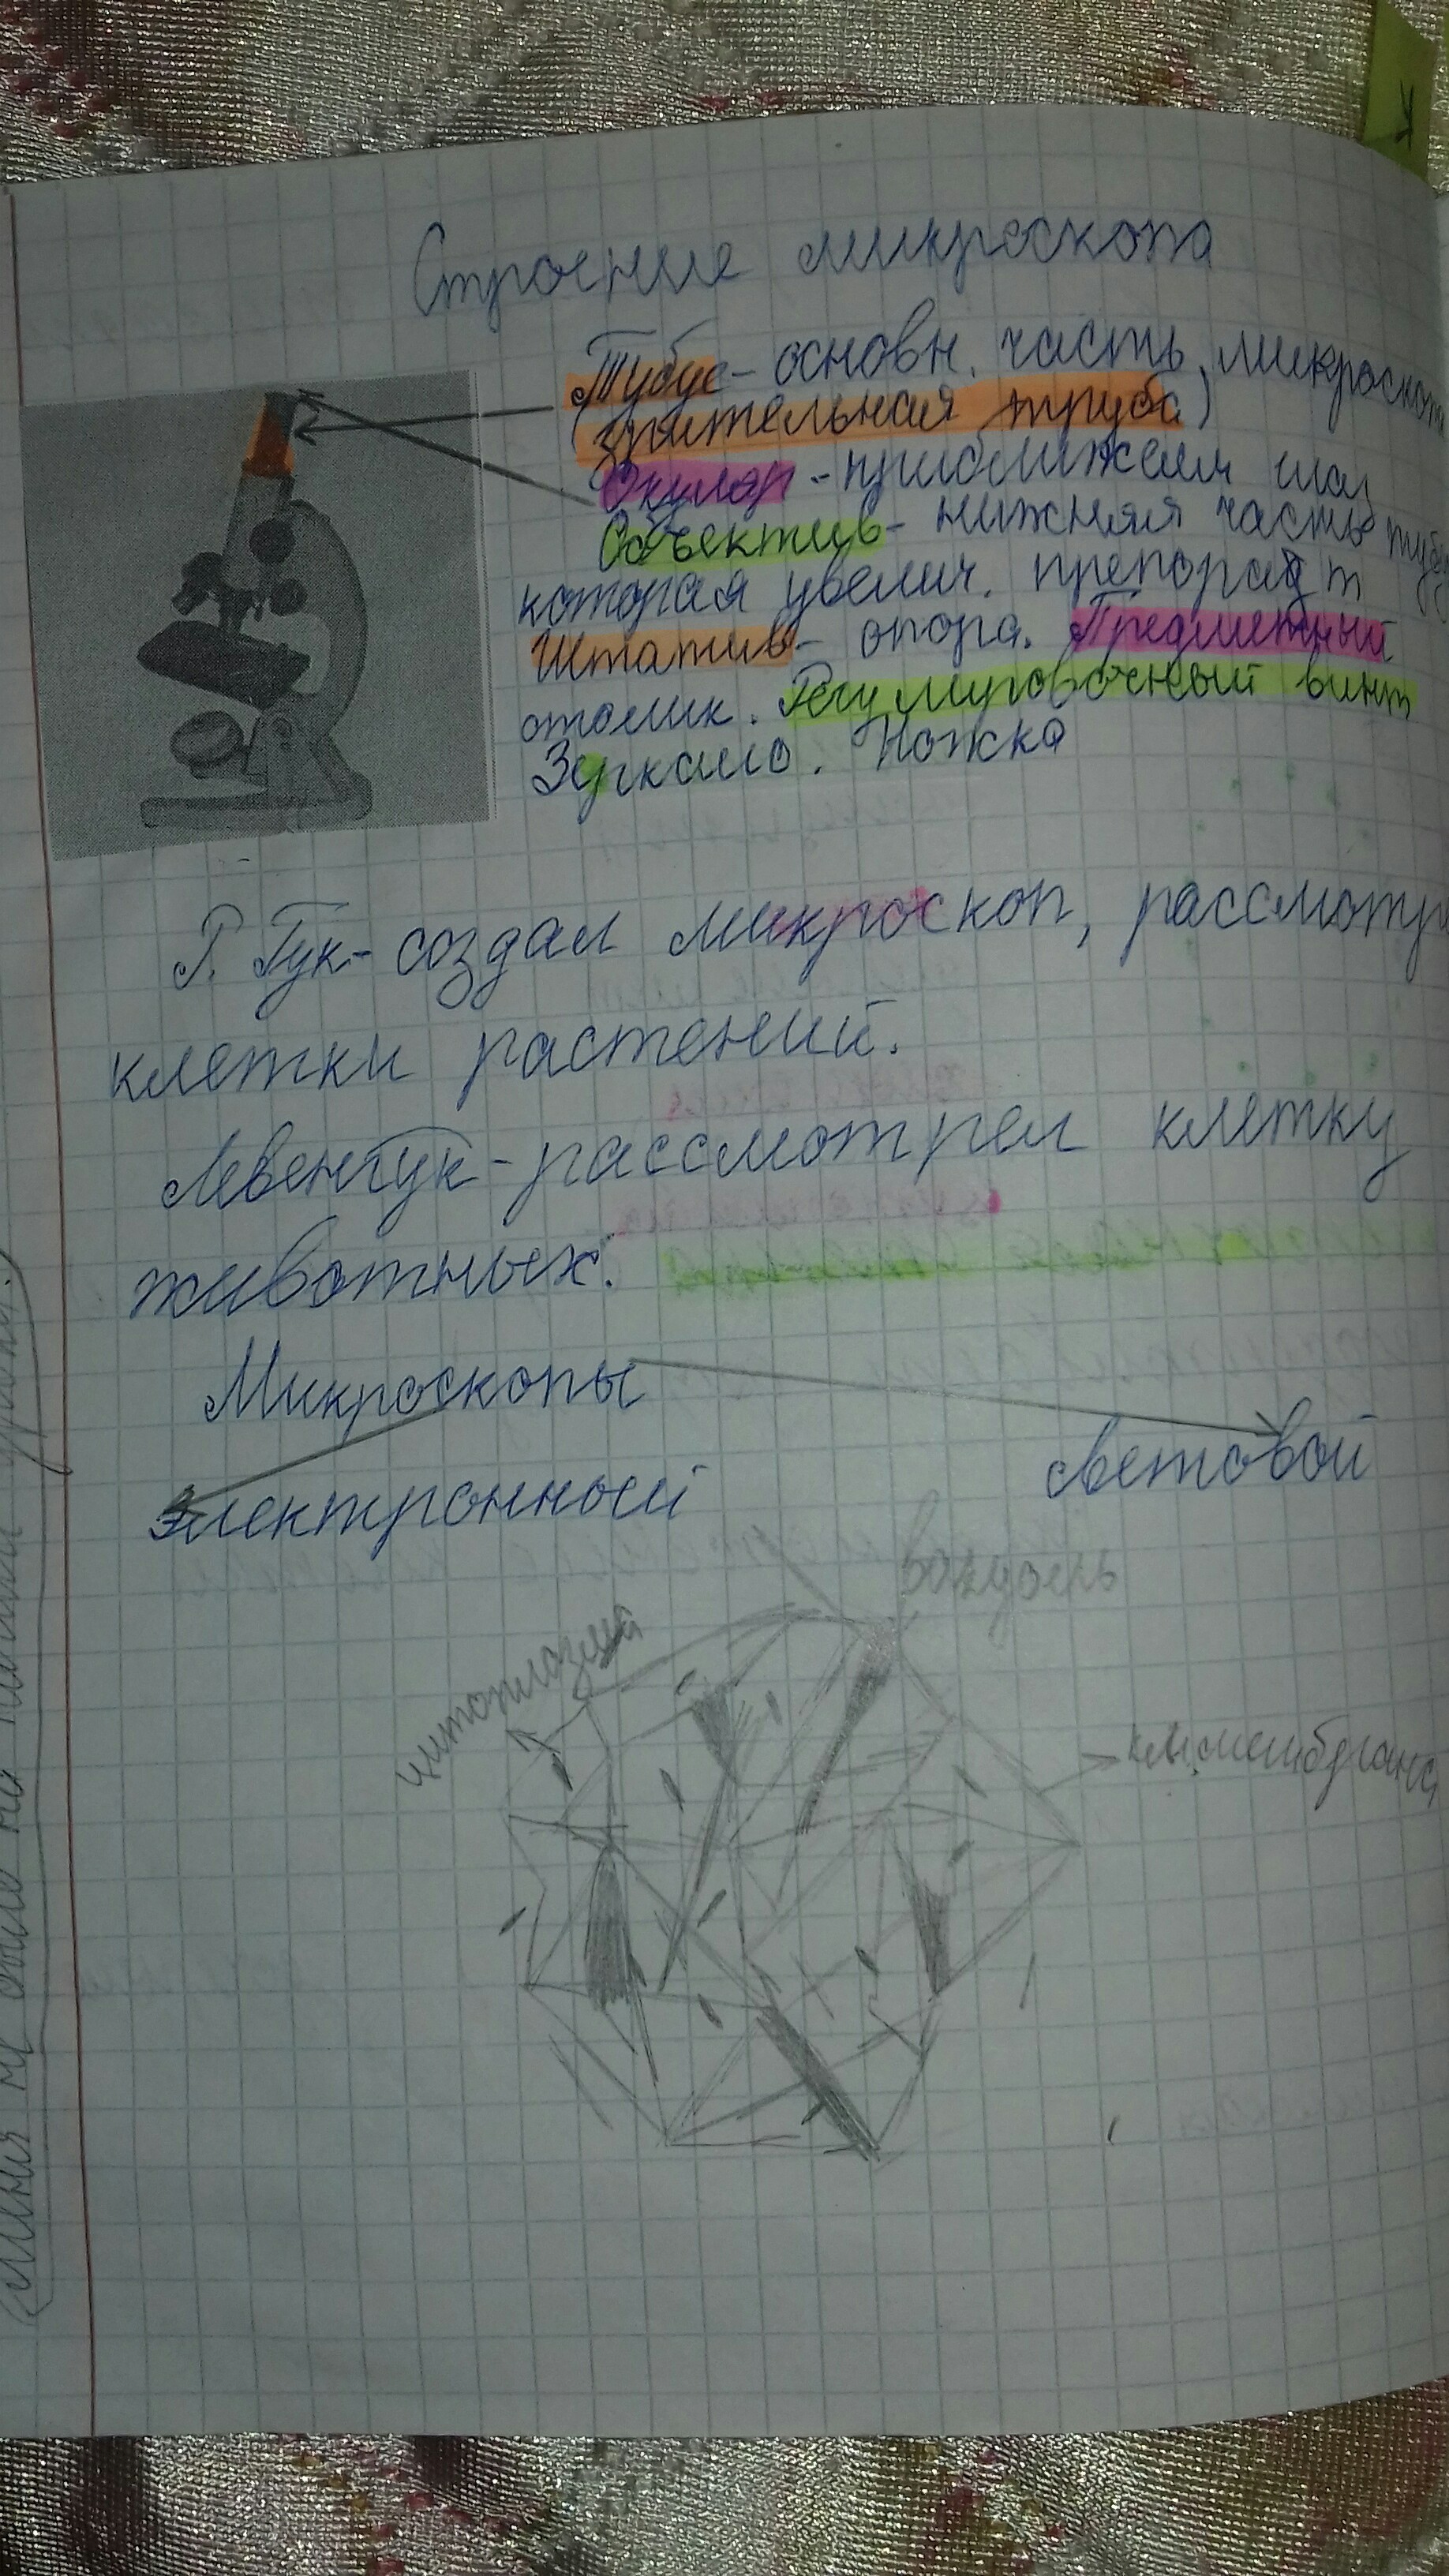 Строение микроскопа
Тубус - основн. часть микроскопа
(зрительная труба)
Окуляр - приближаем
Объектив - нижняя часть
которая увелич. препорат
Штатив - опора. Предметный
столик. Регулировочный винт
Зеркало. Ножка
Р. Гук - создал микроскоп, рассмотр
клетки растений.
Левенгук - рассмотрел клетку
животных.
Микроскопы
Электронный
световой
вакуоль
цитоплазма
кл. мембрана